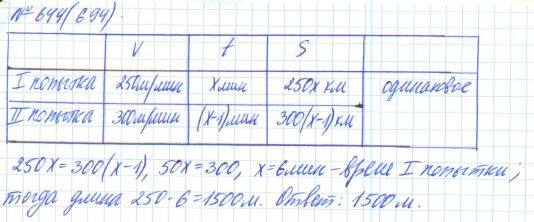 № 644(694).
V t S
I попытка 250м/мин x мин 250x км одинаковое
II попытка 300м/мин (x-1)мин 300(x-1)км
250x=300(x-1), 50x=300, x=6мин - время I попытки;
тогда длина 250·6=1500м. Ответ: 1500м.